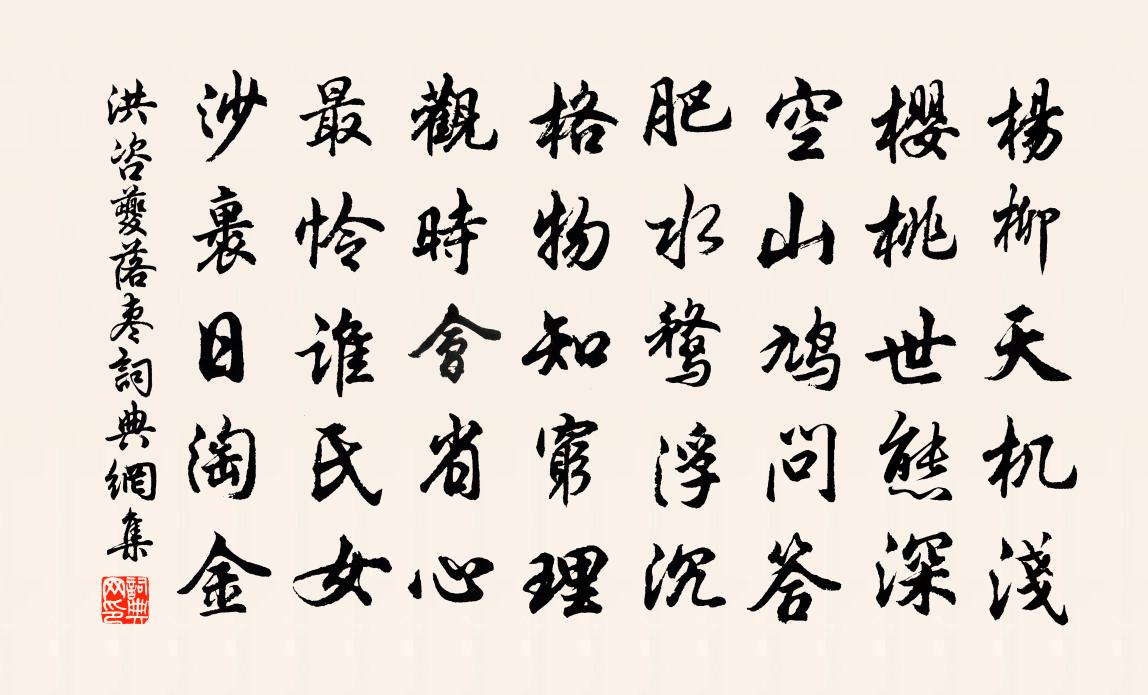 楊柳天机淺
櫻桃世態深
空山鳩問答
肥水鶩浮沉
格物知窮理
觀時會省心
最怜誰氏女
沙裏日淘金
洪咨夔落枣詞典網集
詞典网印